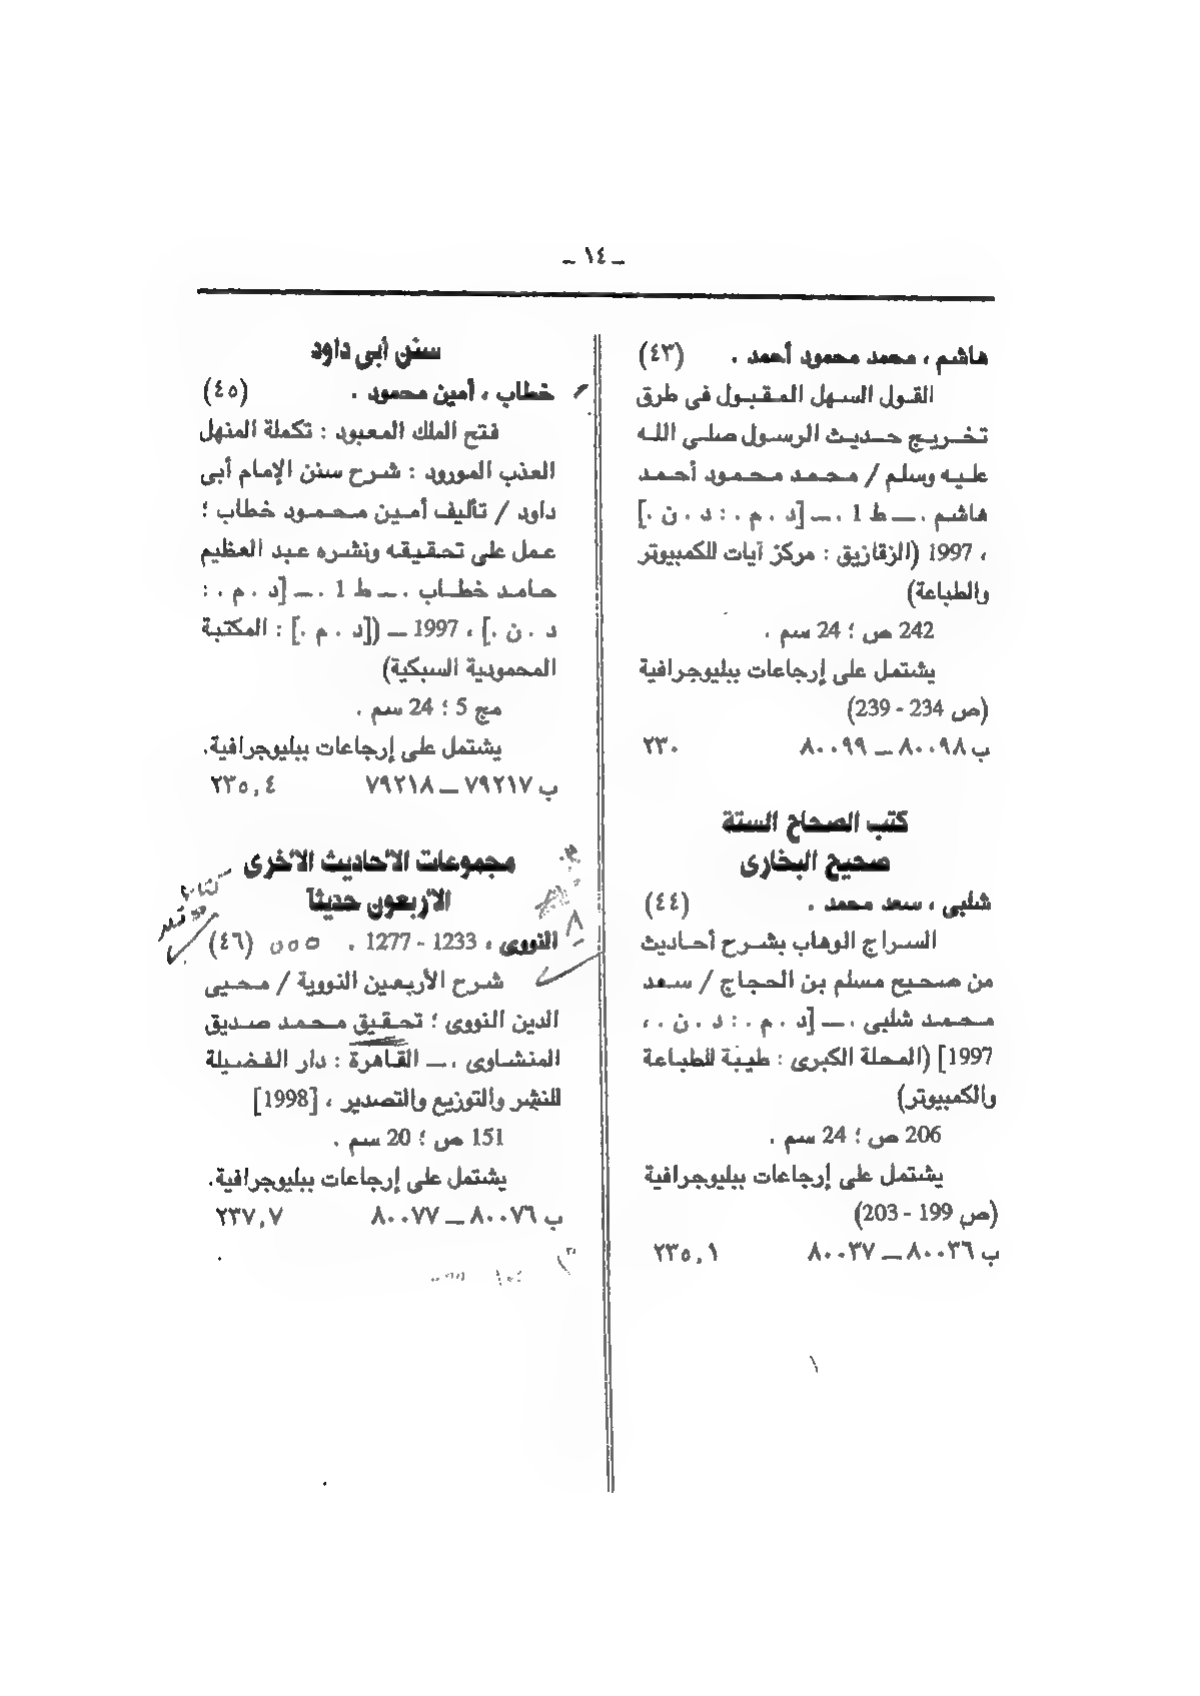 ـ ١٤ ـ
هاشم ، محمد محمود أحمد . (٤٣)
القول السهل المقبول فى طرق
تخريج حديث الرسول صلى الله
عليه وسلم / محمد محمود أحمد
هاشم . ــ ط 1 . ــ [د . م . : د . ن .]
، 1997 (الزقازيق : مركز آيات للكمبيوتر
والطباعة)
242 ص ؛ 24 سم .
يشتمل على إرجاعات ببليوجرافية
(ص 234 - 239)
ب ٨٠٠٩٨ ــ ٨٠٠٩٩ ٢٣٠
كتب الصحاح الستة
صحيح البخارى
شلبى ، سعد محمد . (٤٤)
السراج الوهاب بشرح أحاديث
من صحيح مسلم بن الحجاج / سعد
محمد شلبى . ــ [د . م . : د . ن . ،
1997] (المحلة الكبرى : طيبة للطباعة
والكمبيوتر)
206 ص ؛ 24 سم .
يشتمل على إرجاعات ببليوجرافية
(ص 199 - 203)
ب ٨٠٠٣٦ ــ ٨٠٠٣٧ ٢٣٥,١
سنن أبى داود
خطاب ، أمين محمود . (٤٥)
فتح الملك المعبود : تكملة المنهل
العذب المورود : شرح سنن الإمام أبى
داود / تأليف أمين محمود خطاب ؛
عمل على تحقيقه ونشره عبد العظيم
حامد خطاب . ــ ط 1 . ــ [د . م . :
د . ن .] ، 1997 ــ ([د . م .] : المكتبة
المحمودية السبكية)
مج 5 ؛ 24 سم .
يشتمل على إرجاعات ببليوجرافية.
ب ٧٩٢١٧ ــ ٧٩٢١٨ ٢٣٥,٤
مجموعات الأحاديث الأخرى
الأربعون حديثاً
النووى ، 1233 - 1277 . (٤٦)
شرح الأربعين النووية / محيى
الدين النووى ؛ تحقيق محمد صديق
المنشاوى . ــ القاهرة : دار الفضيلة
للنشر والتوزيع والتصدير ، [1998]
151 ص ؛ 20 سم .
يشتمل على إرجاعات ببليوجرافية.
ب ٨٠٠٧٦ ــ ٨٠٠٧٧ ٢٣٧,٧